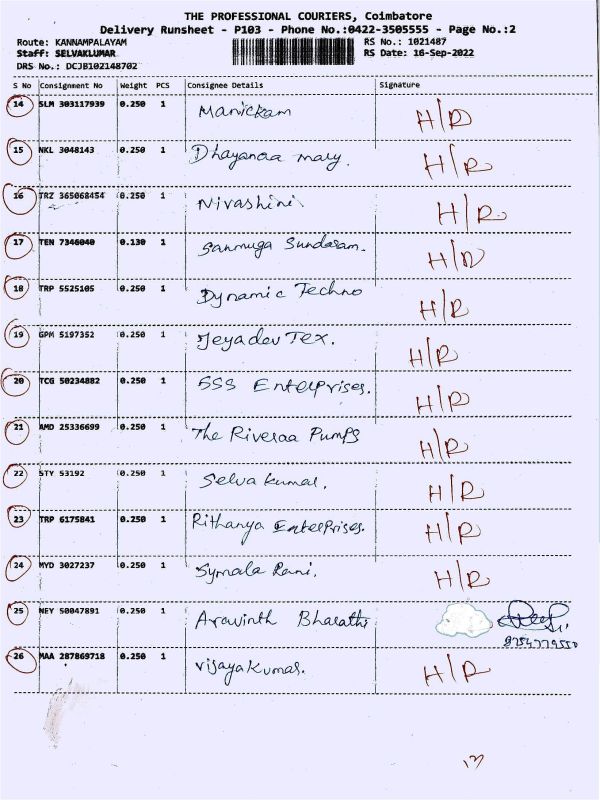 THE PROFESSIONAL COURIERS, Coimbatore
Delivery Runsheet - P103 - Phone No.:0422-3505555 - Page No.:2
Route: KANNAMPALAYAM RS No.: 1021487
Staff: SELVAKLUMAR RS Date: 16-Sep-2022
DRS No.: DCJB102148702
S No Consignment No Weight PCS Consignee Details Signature
14 SLM 303117939 0.250 1 Manickam H/R
15 NKL 3048143 0.250 1 Dhayanaa mary. H/R
16 TRZ 365068454 0.250 1 Nivashini H/R
17 TEN 7346040 0.130 1 Sanmuga Sundaram. H/R
18 TRP 5525105 0.250 1 Dynamic Techno H/R
19 GPM 5197352 0.250 1 Jeyadev Tex. H/R
20 TCG 50234882 0.250 1 SSS Enterprises. H/R
21 AMD 25336699 0.250 1 The Riveraa Pumps H/R
22 STY 53192 0.250 1 Selva kumar. H/R
23 TRP 6175841 0.250 1 Rithanya Enterprises. H/R
24 MYD 3027237 0.250 1 Symala Rani. H/R
25 NEY 50047891 0.250 1 Aravinth Bharathi
26 MAA 287869718 0.250 1 Vijayakumar. H/R